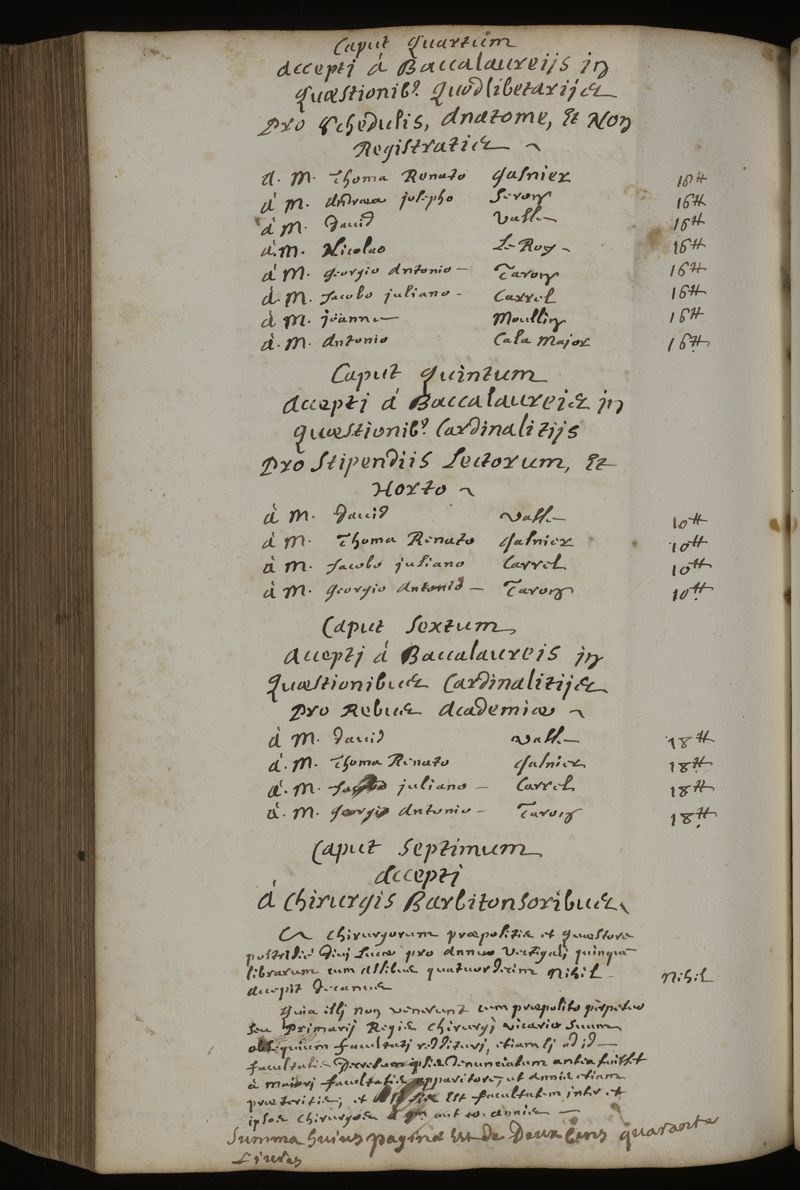 Caput Quartum
Accepti á Baccalaureijs in
Quæstionib⁹ Quodlibetarijs
Pro Schedulis, Anatome, Et Non
Registratis ~
A. M. Thoma Renato Gasnier 16tt
á M. Andræa josepho Seron 16tt
á M. David Vasse 16tt
á. M. Nicolao Le Roy 16tt
á M. Georgio Antonio Taron 16tt
á. M. Jacobo juliano Carrel 16tt
á M. joanne Moullin 16tt
á. M. Antonio Casa Major 16tt
Caput Quintum
Accepti á Baccalaureis in
Quæstionib⁹ Cardinalitijs
Pro Stipendiis Lectorum, Et
Horto ~
á M. David Vasse 10tt
á M. Thoma Renato Gasnier 10tt
á M. Jacobo juliano Carrel 10tt
á M. Georgio Antonio Taron 10tt
Caput Sextum
Accepti á Baccalaureis in
Quæstionibus Cardinalitijs
Pro Rebus Academiæ ~
á M. David Vasse 18tt
á. M. Thoma Renato Gasnier 18tt
á. M. juliano Carrel 18tt
á. M. Georgio Antonio Taron 18tt
Caput Septimum
Accepti
á Chirurgis Barbitonsoribus
A Chirurgorum præpositis et Quæstore
postridie Divi Lucæ pro Annuo Vectigali quinque
librarum cum Assibus quatuordecim Nihil Nihil
Accepit Decanus
Quia illi non venerunt cum præposito perpetuo
seu Primarij Regis Chirurgi vicario suum
obsequium facultati reddituri, etiamsi id
facultatis Decretum ipsis denunciatum antea fuisset
á maiori facultatis apparitore, ut annis etiam
præteritis, et Est facultatem inter et
ipsos Chirurgos á aut 10. annis
Summa huius paginæ Est de Deux Cens quarante
Livres